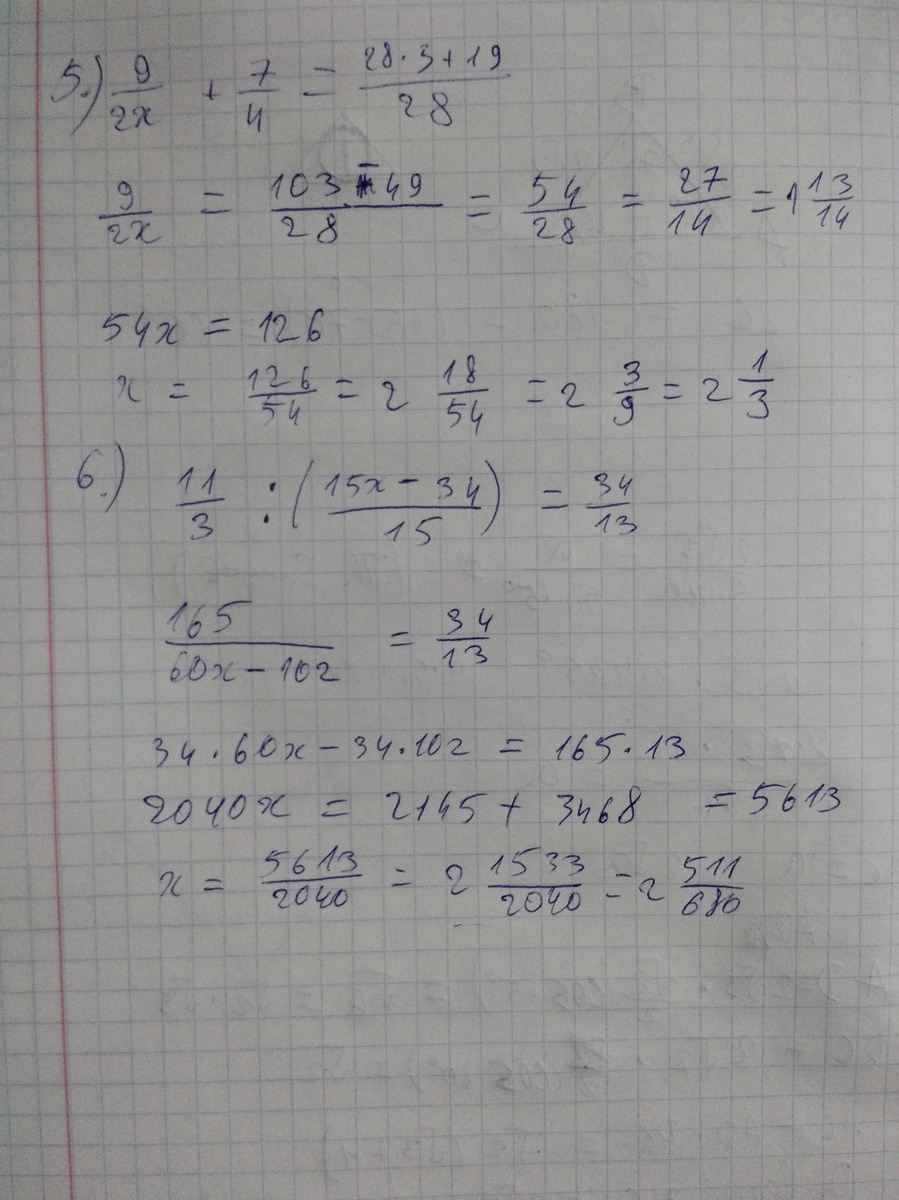 5.) 9/2x + 7/4 = (28·3+19)/28
9/2x = (103-49)/28 = 54/28 = 27/14 = 1 13/14
54x = 126
x = 126/54 = 2 18/54 = 2 3/9 = 2 1/3
6.) 11/3 : ((15x - 34)/15) = 34/13
165/(60x - 102) = 34/13
34·60x - 34·102 = 165·13
2040x = 2145 + 3468 = 5613
x = 5613/2040 = 2 1533/2040 = 2 511/680